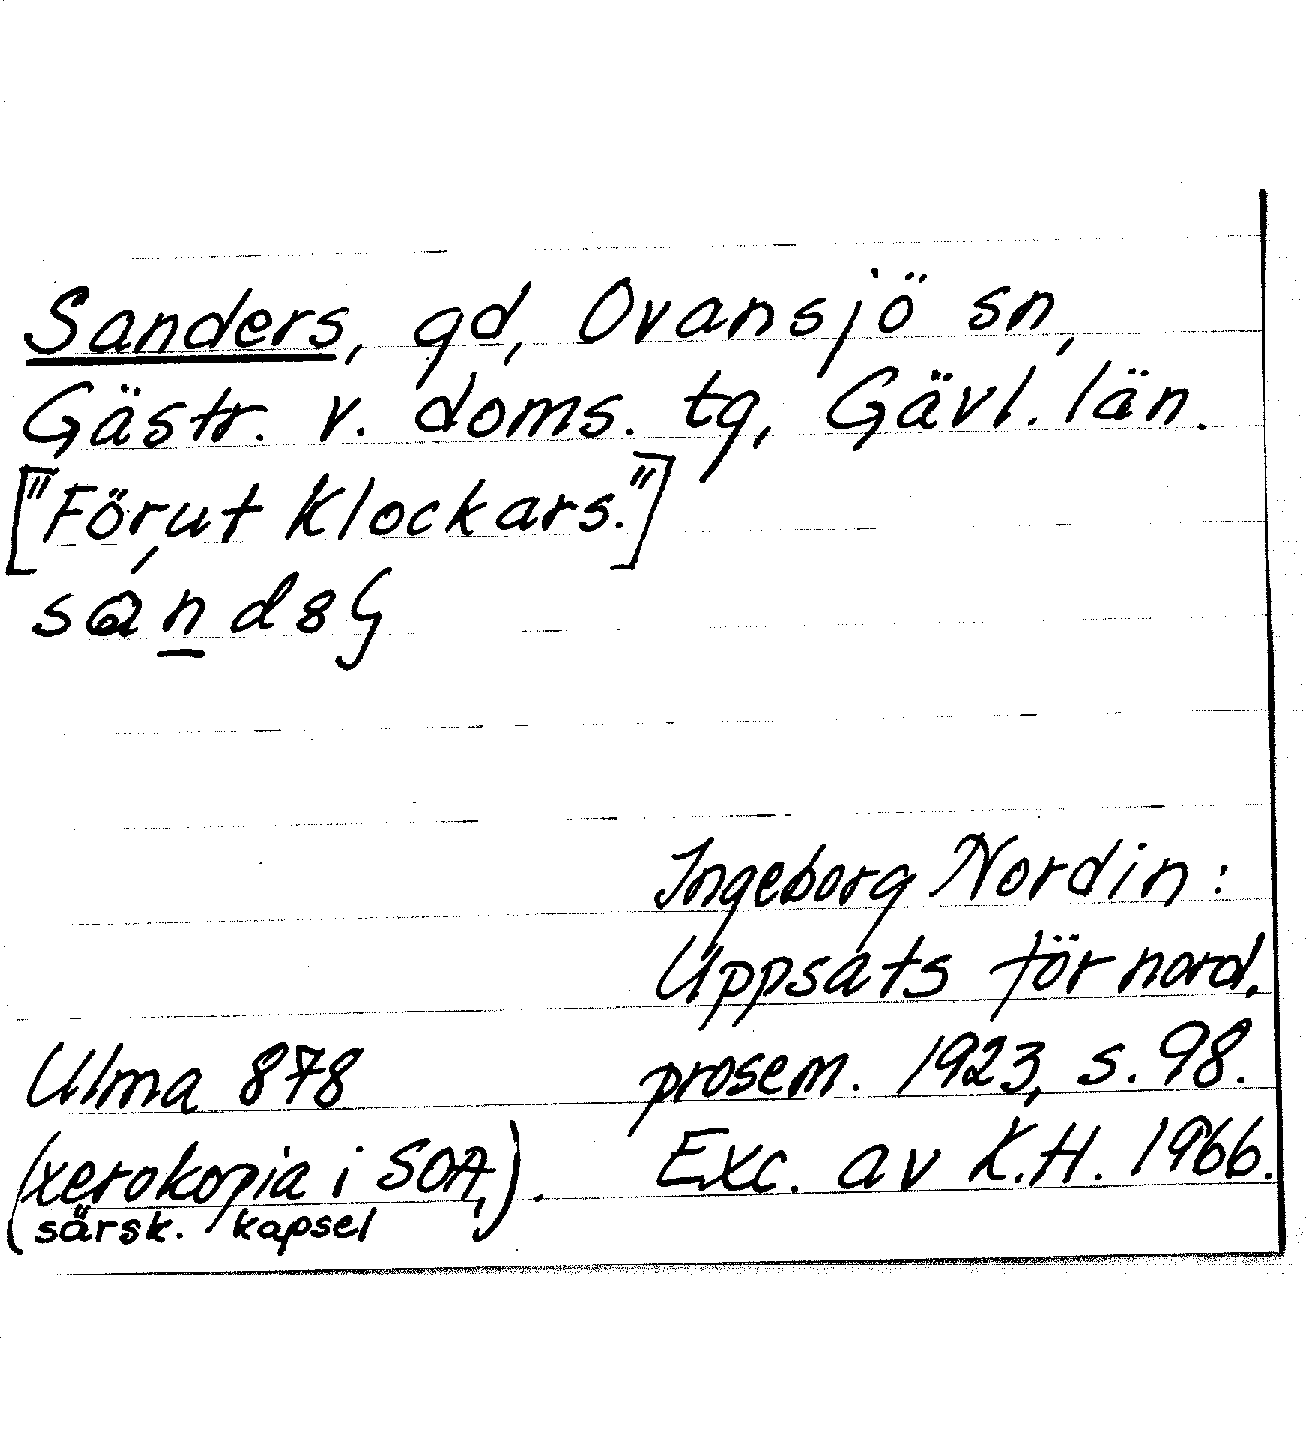 Sanders, gd, Ovansjö sn,
Gästr. v. doms. tg, Gävl. län.
["Förut Klockars."]
Ingeborg Nordin:
Uppsats för nord.
prosem. 1923, s. 98.
Exc. av K.H. 1966.
Ulma 878
(xerokopia i SOA,).
särsk. kapsel